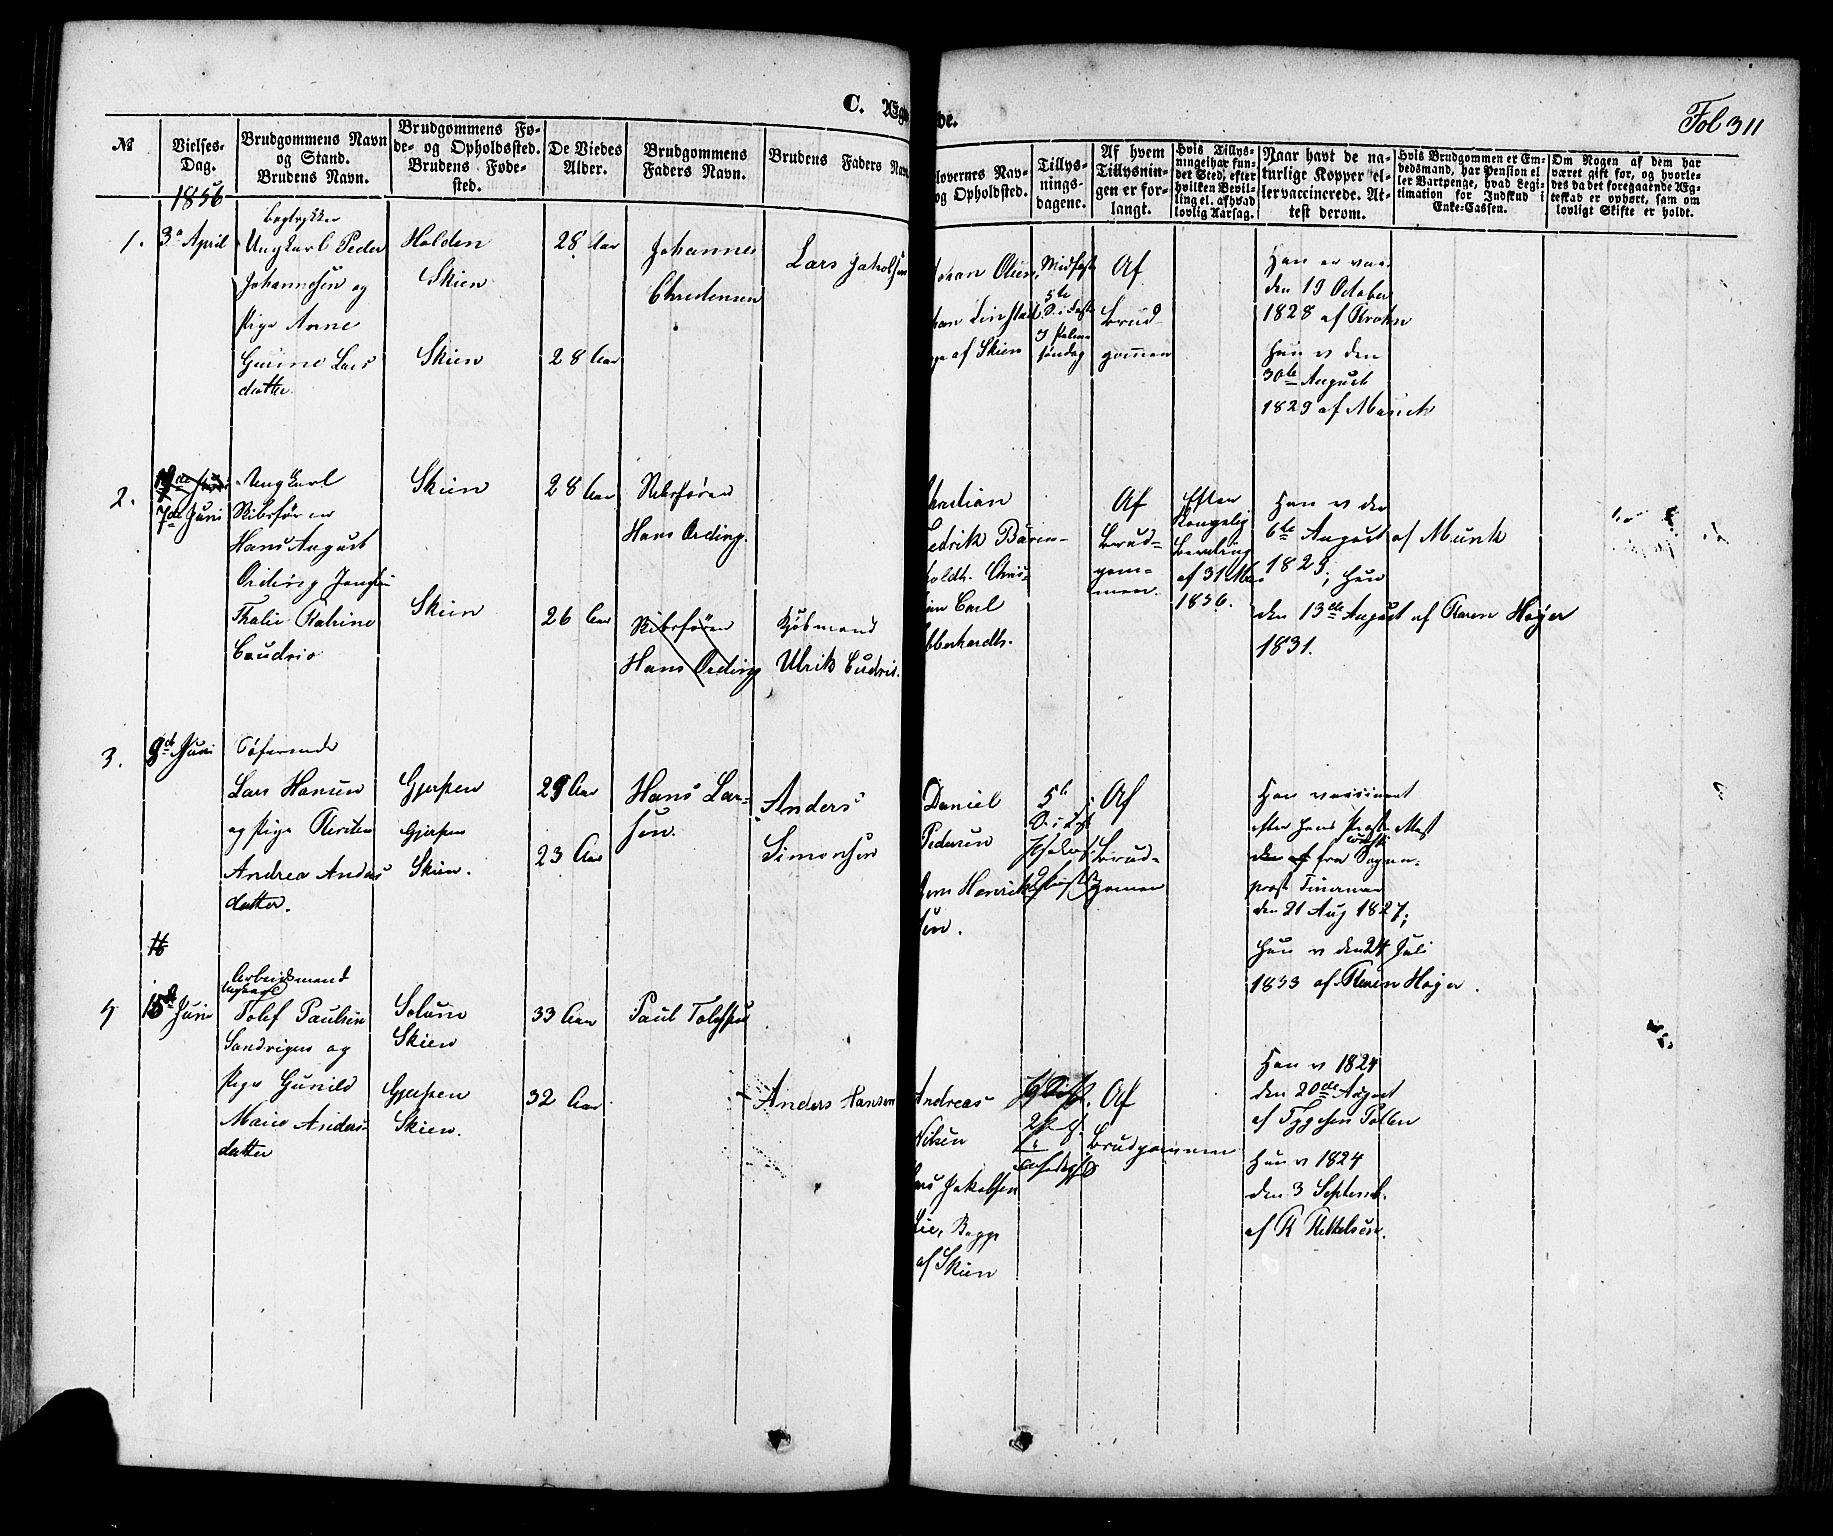 C. Ægte
be.
Fol 311
№
Vielses-Dag.
Brudgommens Navn og Stand. Brudens Navn.
Brudgommens Fø-de- og Opholdssted. Brudens Føde-sted.
De Viedes Alder.
Brudgommens Faders Navn.
Brudens Faders Navn
lovernes Nav-
og Opholdsted.
Tillys-nings-dagene.
Af hvem Tillysnin-gen er for-langt.
Hvis Tillys-ningel har fun-det Sted, efter hvilken Bevil-ling el. af hvad lovlig Aarsag.
Naar havt de na-turlige Kopper el-ler vaccinerede. At-test derom.
Hvis Brudgommen er Em-bedsmand, har Pension el-ler Vartpenge, hvad Legi-timation for Indskud i Enke-Cassen.
Om Nogen af dem har været gift før, og hvorle-des da det foregaaende Æg-teskab er ophørt, sam om lovligt Skifte er holdt.
1856
1.
3 April
Bogtrykker
Ungkarl Peder
Johannesen og
Pige Anne
Gurine Lars
datter.
Holden
Skien
Skien
28 Aar
28 Aar
Johannes
Christensen
Lars Jakobsen
Johan Olsen
af Skien
Midfaste
5te
S. i Faste
og Palme
søndag
Af
Brud
gommen
Han er vac.
den 19 October
1828 af Krohn
Hun v den
30te August
1829 af
2.
7de Juni
Ungkarl
Skibsfører
Hans August
Ording Jomfru
Thalie Katrine
Skien
Skien
28 Aar
26 Aar
Skibsfører
Hans Ording.
Skibsføren
Hans Ording
Kjøbmand
Ulrik
Christian
edrik Baren-
holdt. Chris-
tian Carl
bberhardts.
Af
Brud-
gom-
men.
Efter
Kongelig
Bevilling
af 31 Mai
1856.
Han v den
6te August af Munk
1829; Hun
den 13de August af Karen Højer
1831.
3.
8de Juni
Søfarende
Lars Hansen
og Pige Kirsten
Andrea Anders
datter.
Gjerpen
Gjerpen
Skien.
29 Aar
23 Aar
Hans Lar-
sen.
Anders
Simonsen
Daniel
Pedersen
Henrik
sen.
Af
Brud-
gomen
Han vaccineret
efter hans
fra Sogne-
prest
den 21 Aug 1827;
Hun v den 24 Juli
1833 af Karen Højer.
16
4
15de Juni
Arbeidsmand
Tolef Paulsen
Sandvigen og
Pige Gunild
Marie Anders-
datter
Solum
Skien
Gjerpen
Skien.
33 Aar
32 Aar
Paul Tolefsen
Anders Hansen
Andreas
Nilsen
Lars Jakobsen
Lie, Begge
af Skien
Af
Brudgommen
Han v 1824
den 20de August
af Tygesen
Hun v 1824
den 3 Septemb.
af K Kittelsen.